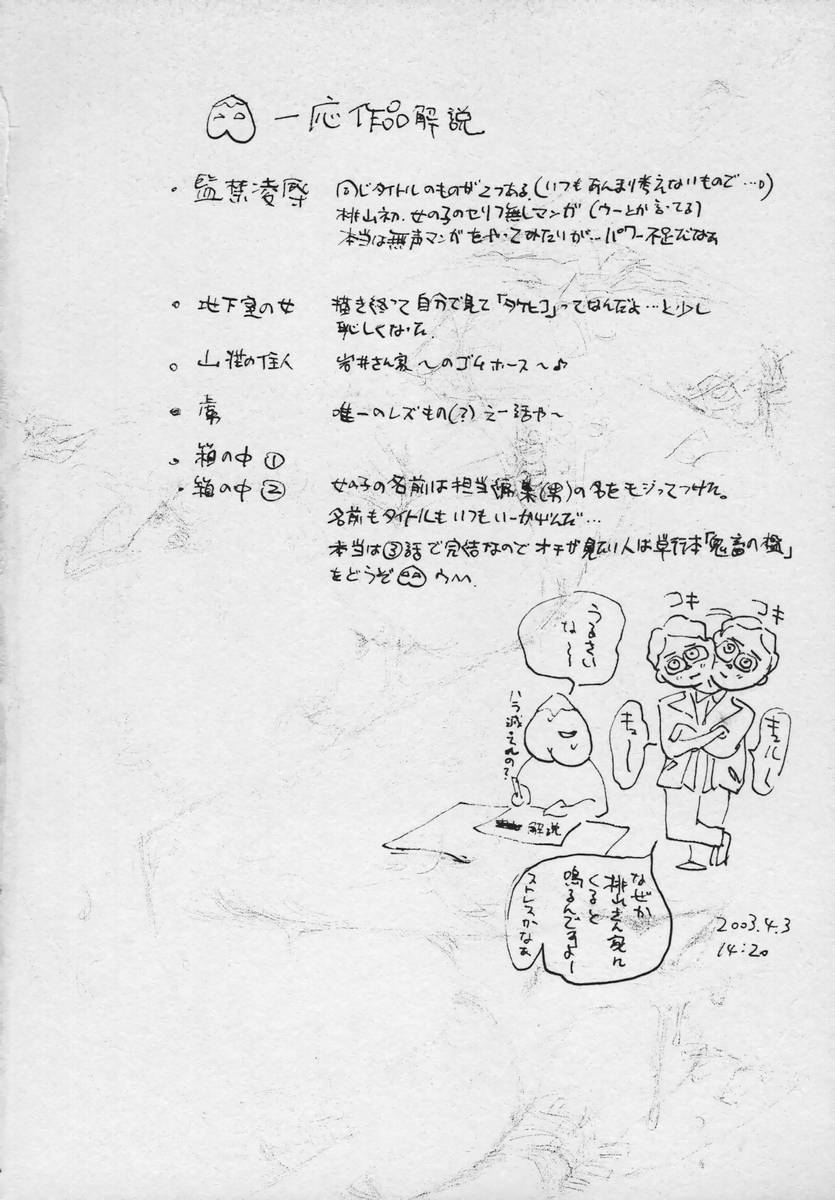 一応作品解説
・監禁凌辱
同じタイトルのものが2つある。(いつもあんまり考えないもので…。)
桃山初、女の子のセリフ無しマンガ (ウーとか言ってる)
本当は無声マンガをやってみたいが…パワー不足だなぁ
地下室の女
描き終って自分で見て「タケヒコ」ってなんだよ…と少し
恥しくなった。
山荘の住人
岩井さん家〜のゴムホース〜♪
唯一のレズもの(?) えー話や〜
箱の中 ①
・箱の中 ②
女の子の名前は担当編集(男)の名をモジってつけた。
名前もタイトルもいつもいーかげんだ…
本当は③話で完結なのでオチが見たい人は単行本「鬼畜の檻」
をどうぞ ウヘヘ
コキ
コキ
うるさい
な〜〜
ハラ減ってんの?
キュー
キュルル
解説
なぜか
桃山さん家に
くると
鳴るんですよー
ストレスかなぁ
2003.4.3
14:20